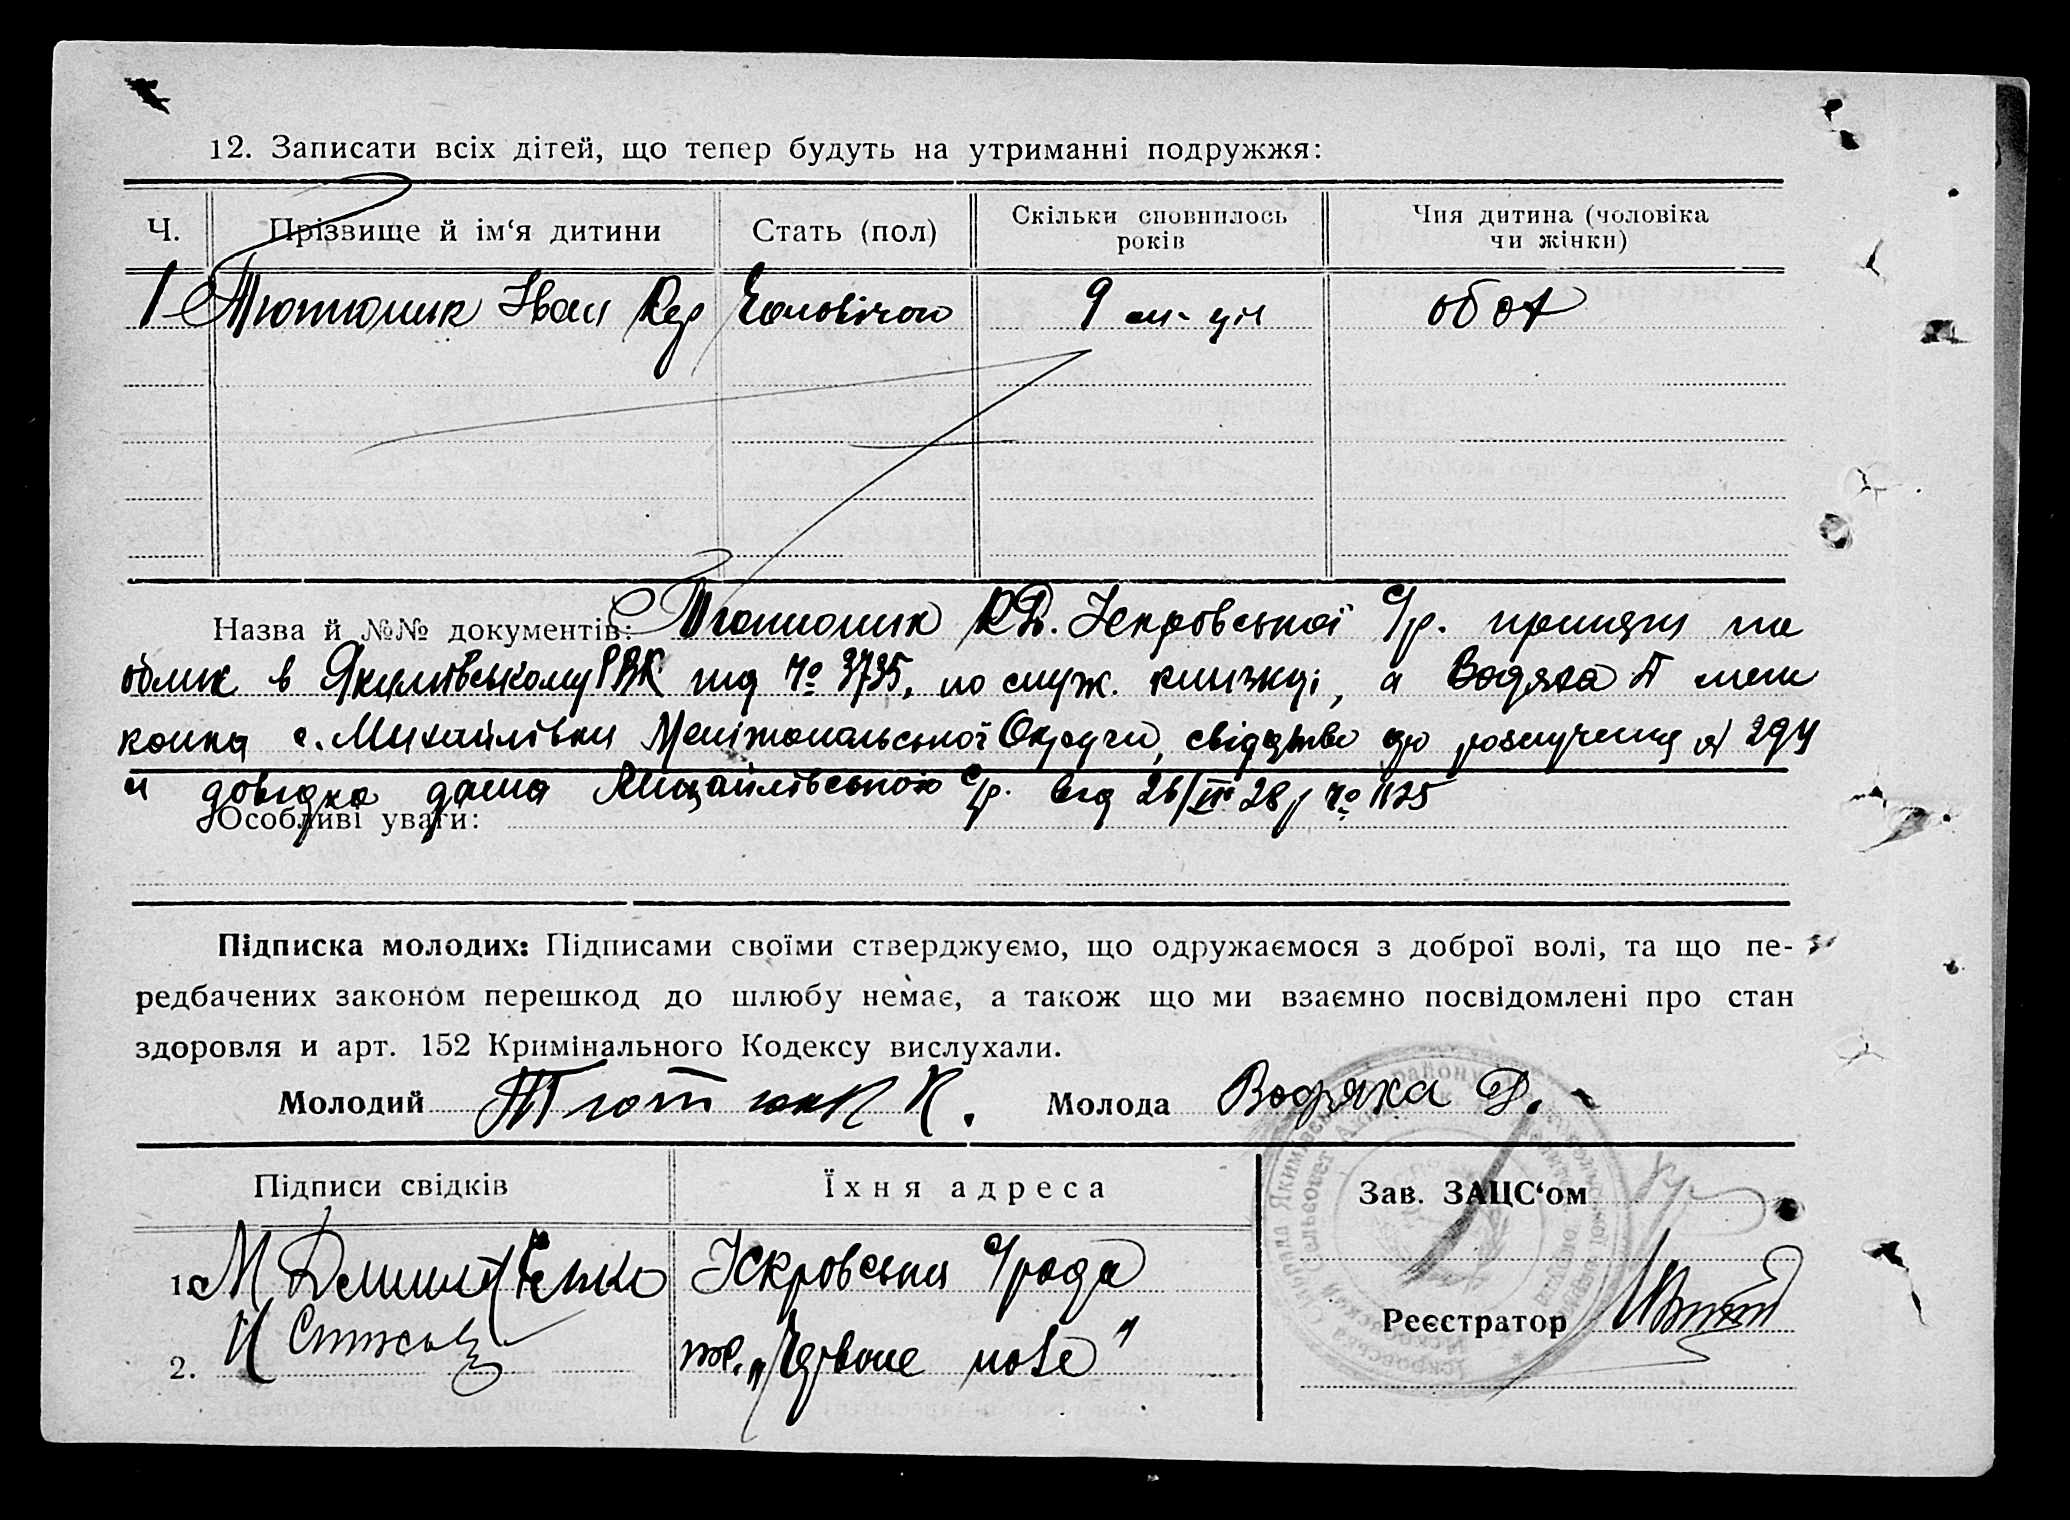 12. Записати всіх дітей, що тепер будуть на утриманні подружжя:
Ч. Прізвище й ім‘я дитини Стать (пол) Скільки сповнилось років Чия дитина (чоловіка чи жінки)
1 Тютюник Іван Чоловічою 9 обох
Назва й №№ документів: Тютюник К. Іскровської с/р. принятий на
облік в Якимівському РВК під № 3735, по служ. книжці, а Водяха
с. Михайлівки Мелітопольської Округи, свідцтво про розлучення
й довідка дана Михайлівською с/р. від 26/VII 28 р № 1125
Особливі уваги:
Підписка молодих: Підписами своїми стверджуємо, що одружаємося з доброї волі, та що пе-
редбачених законом перешкод до шлюбу немає, а також що ми взаємно посвідомлені про стан
здоровля и арт. 152 Кримінального Кодексу вислухали.
Молодий Тютюник К. Молода Водяха Д.
Підписи свідків Їхня адреса Зав. ЗАЦС‘ом
1. М Іскровська с/рада
2. „Червоне поле“
Реєстратор